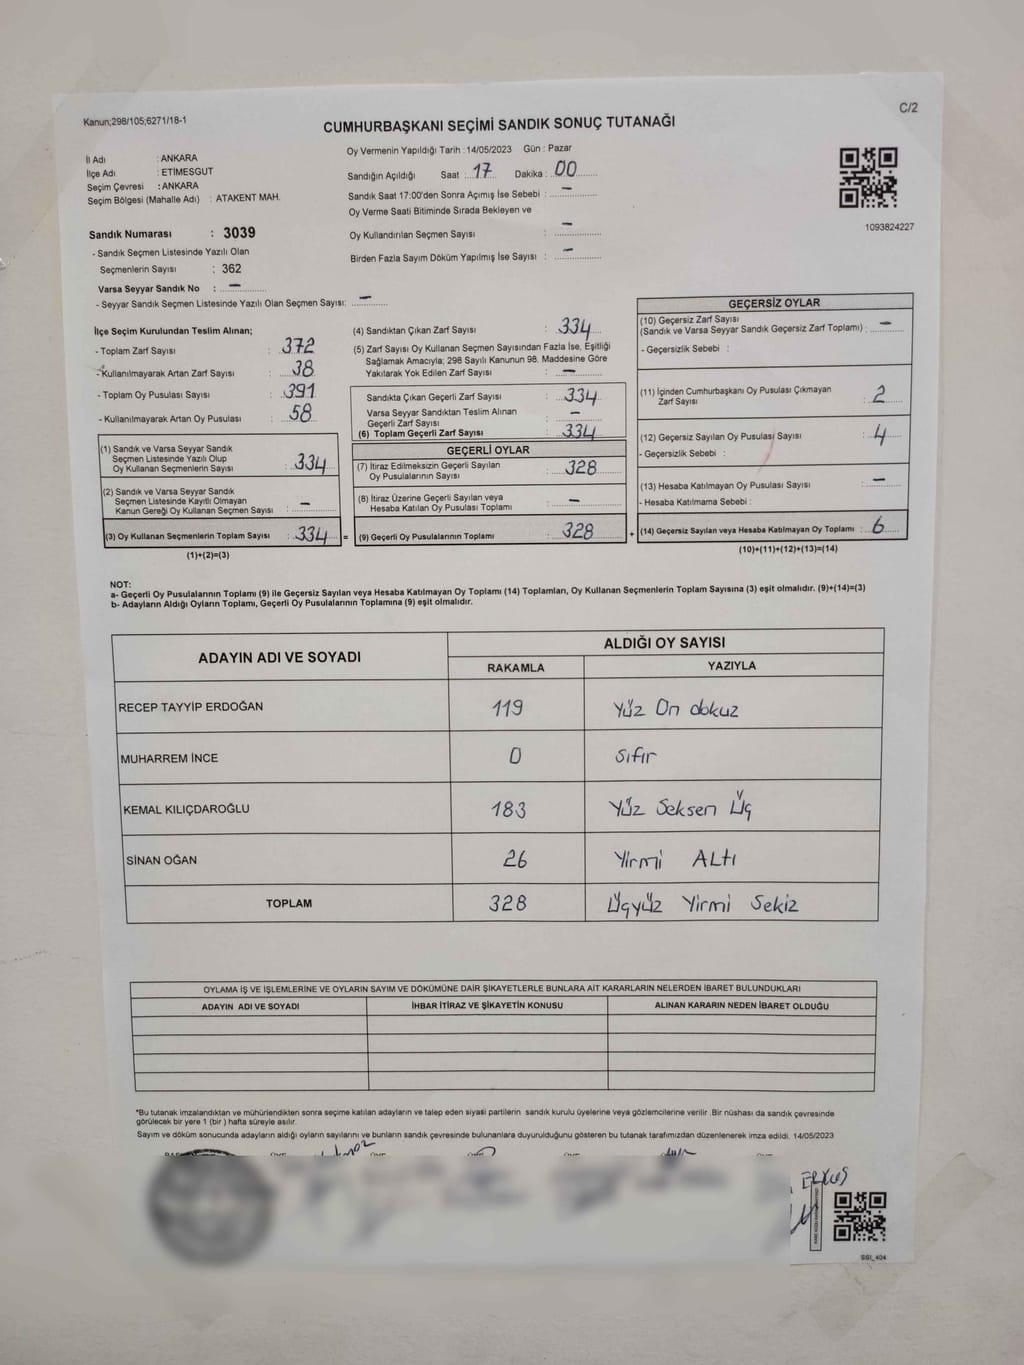 Kanun;298/105;6271/18-1
C/2
CUMHURBAŞKANI SEÇİMİ SANDIK SONUÇ TUTANAĞI
İl Adı : ANKARA
İlçe Adı : ETİMESGUT
Seçim Çevresi : ANKARA
Seçim Bölgesi (Mahalle Adı) : ATAKENT MAH.
Sandık Numarası : 3039
- Sandık Seçmen Listesinde Yazılı Olan
Seçmenlerin Sayısı : 362
Varsa Seyyar Sandık No : -
- Seyyar Sandık Seçmen Listesinde Yazılı Olan Seçmen Sayısı: -
Oy Vermenin Yapıldığı Tarih : 14/05/2023 Gün : Pazar
Sandığın Açıldığı Saat : 17 Dakika : 00
Sandık Saat 17:00'den Sonra Açımış İse Sebebi : -
Oy Verme Saati Bitiminde Sırada Bekleyen ve
Oy Kullandırılan Seçmen Sayısı : -
Birden Fazla Sayım Döküm Yapılmış İse Sayısı : -
1093824227
İlçe Seçim Kurulundan Teslim Alınan;
- Toplam Zarf Sayısı : 372
- Kullanılmayarak Artan Zarf Sayısı : 38
- Toplam Oy Pusulası Sayısı : 391
- Kullanılmayarak Artan Oy Pusulası : 58
(1) Sandık ve Varsa Seyyar Sandık
Seçmen Listesinde Yazılı Olup
Oy Kullanan Seçmenlerin Sayısı : 334
(2) Sandık ve Varsa Seyyar Sandık
Seçmen Listesinde Kayıtlı Olmayan
Kanun Gereği Oy Kullanan Seçmen Sayısı : -
(3) Oy Kullanan Seçmenlerin Toplam Sayısı : 334 =
(1)+(2)=(3)
(4) Sandıktan Çıkan Zarf Sayısı : 334
(5) Zarf Sayısı Oy Kullanan Seçmen Sayısından Fazla İse, Eşitliği
Sağlamak Amacıyla; 298 Sayılı Kanunun 98. Maddesine Göre
Yakılarak Yok Edilen Zarf Sayısı : -
Sandıkta Çıkan Geçerli Zarf Sayısı : 334
Varsa Seyyar Sandıktan Teslim Alınan
Geçerli Zarf Sayısı : -
(6) Toplam Geçerli Zarf Sayısı : 334
GEÇERLİ OYLAR
(7) İtiraz Edilmeksizin Geçerli Sayılan
Oy Pusulalarının Sayısı : 328
(8) İtiraz Üzerine Geçerli Sayılan veya
Hesaba Katılan Oy Pusulası Toplamı : -
(9) Geçerli Oy Pusulalarının Toplamı : 328 +
GEÇERSİZ OYLAR
(10) Geçersiz Zarf Sayısı
(Sandık ve Varsa Seyyar Sandık Geçersiz Zarf Toplamı) : -
- Geçersizlik Sebebi :
(11) İçinden Cumhurbaşkanı Oy Pusulası Çıkmayan
Zarf Sayısı : 2
(12) Geçersiz Sayılan Oy Pusulası Sayısı : 4
- Geçersizlik Sebebi :
(13) Hesaba Katılmayan Oy Pusulası Sayısı : -
- Hesaba Katılmama Sebebi :
(14) Geçersiz Sayılan veya Hesaba Katılmayan Oy Toplamı : 6
(10)+(11)+(12)+(13)=(14)
NOT:
a- Geçerli Oy Pusulalarının Toplamı (9) ile Geçersiz Sayılan veya Hesaba Katılmayan Oy Toplamı (14) Toplamları, Oy Kullanan Seçmenlerin Toplam Sayısına (3) eşit olmalıdır. (9)+(14)=(3)
b- Adayların Aldığı Oyların Toplamı, Geçerli Oy Pusulalarının Toplamına (9) eşit olmalıdır.
ADAYIN ADI VE SOYADI
ALDIĞI OY SAYISI
RAKAMLA YAZIYLA
RECEP TAYYİP ERDOĞAN 119 Yüz On dokuz
MUHARREM İNCE 0 Sıfır
KEMAL KILIÇDAROĞLU 183 Yüz Seksen Üç
SİNAN OĞAN 26 Yirmi ALTı
TOPLAM 328 Üçyüz Yirmi Sekiz
OYLAMA İŞ VE İŞLEMLERİNE VE OYLARIN SAYIM VE DÖKÜMÜNE DAİR ŞİKAYETLERLE BUNLARA AİT KARARLARIN NELERDEN İBARET BULUNDUKLARI
ADAYIN ADI VE SOYADI
İHBAR İTİRAZ VE ŞİKAYETİN KONUSU
ALINAN KARARIN NEDEN İBARET OLDUĞU
*Bu tutanak imzalandıktan ve mühürlendikten sonra seçime katılan adayların ve talep eden siyasi partilerin sandık kurulu üyelerine veya gözlemcilerine verilir .Bir nüshası da sandık çevresinde
görülecek bir yere 1 (bir ) hafta süreyle asılır.
Sayım ve döküm sonucunda adayların aldığı oyların sayılarını ve bunların sandık çevresinde bulunanlara duyurulduğunu gösteren bu tutanak tarafımızdan düzenlenerek imza edildi. 14/05/2023
SSI_404